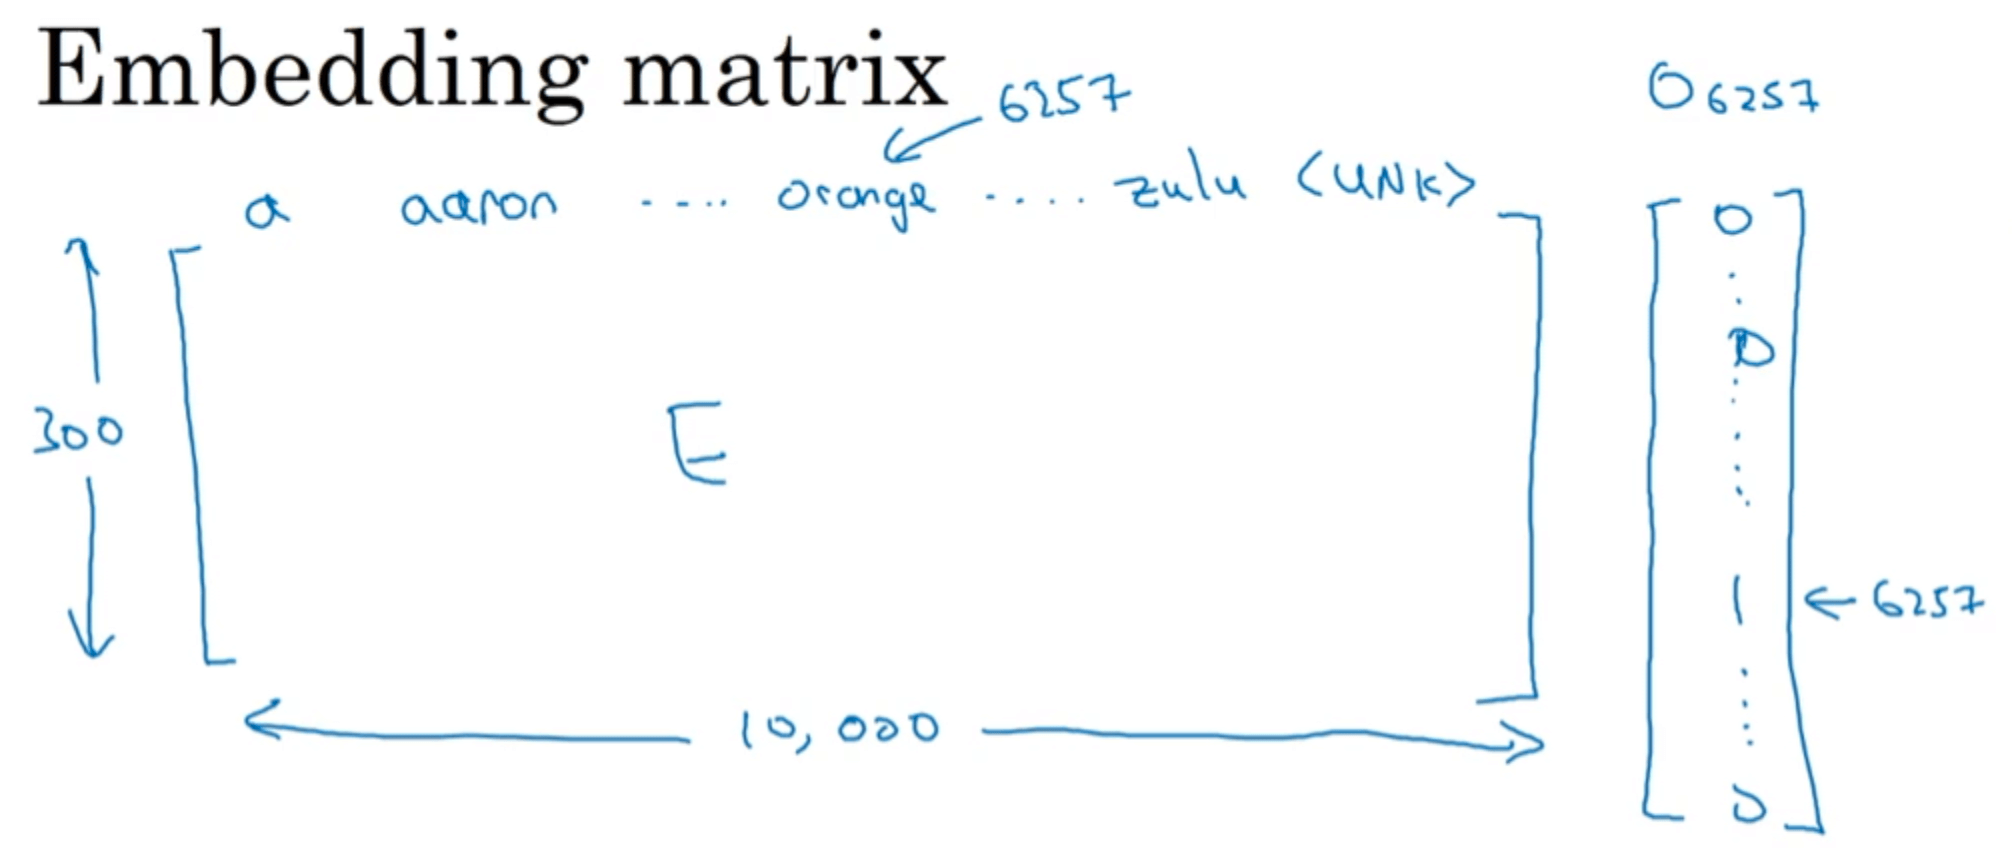 Embedding matrix
6257
O6257
a aaron .... orange .... zulu <UNK>
0
0
300
E
1
← 6257
10,000
0